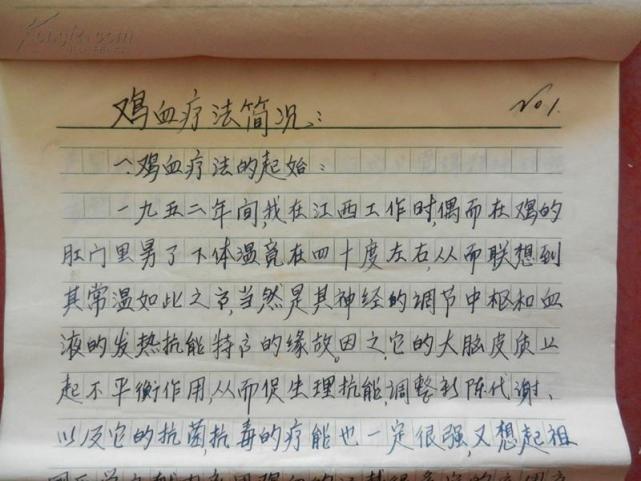 鸡血疗法简况：
No 1.
一、鸡血疗法的起始：
一九五二年间，我在江西工作时，偶而在鸡的
肛门里另了下体温竟在四十度左右，从而联想到
其常温如此之高，当然是其神经的调节中枢和血
液的发热抗能特高的缘故。因之，它的大脑皮质正
起不平衡作用，从而促生理抗能，调整新陈代谢、
以及它的抗菌，抗毒的疗能也一定很强，又想起祖